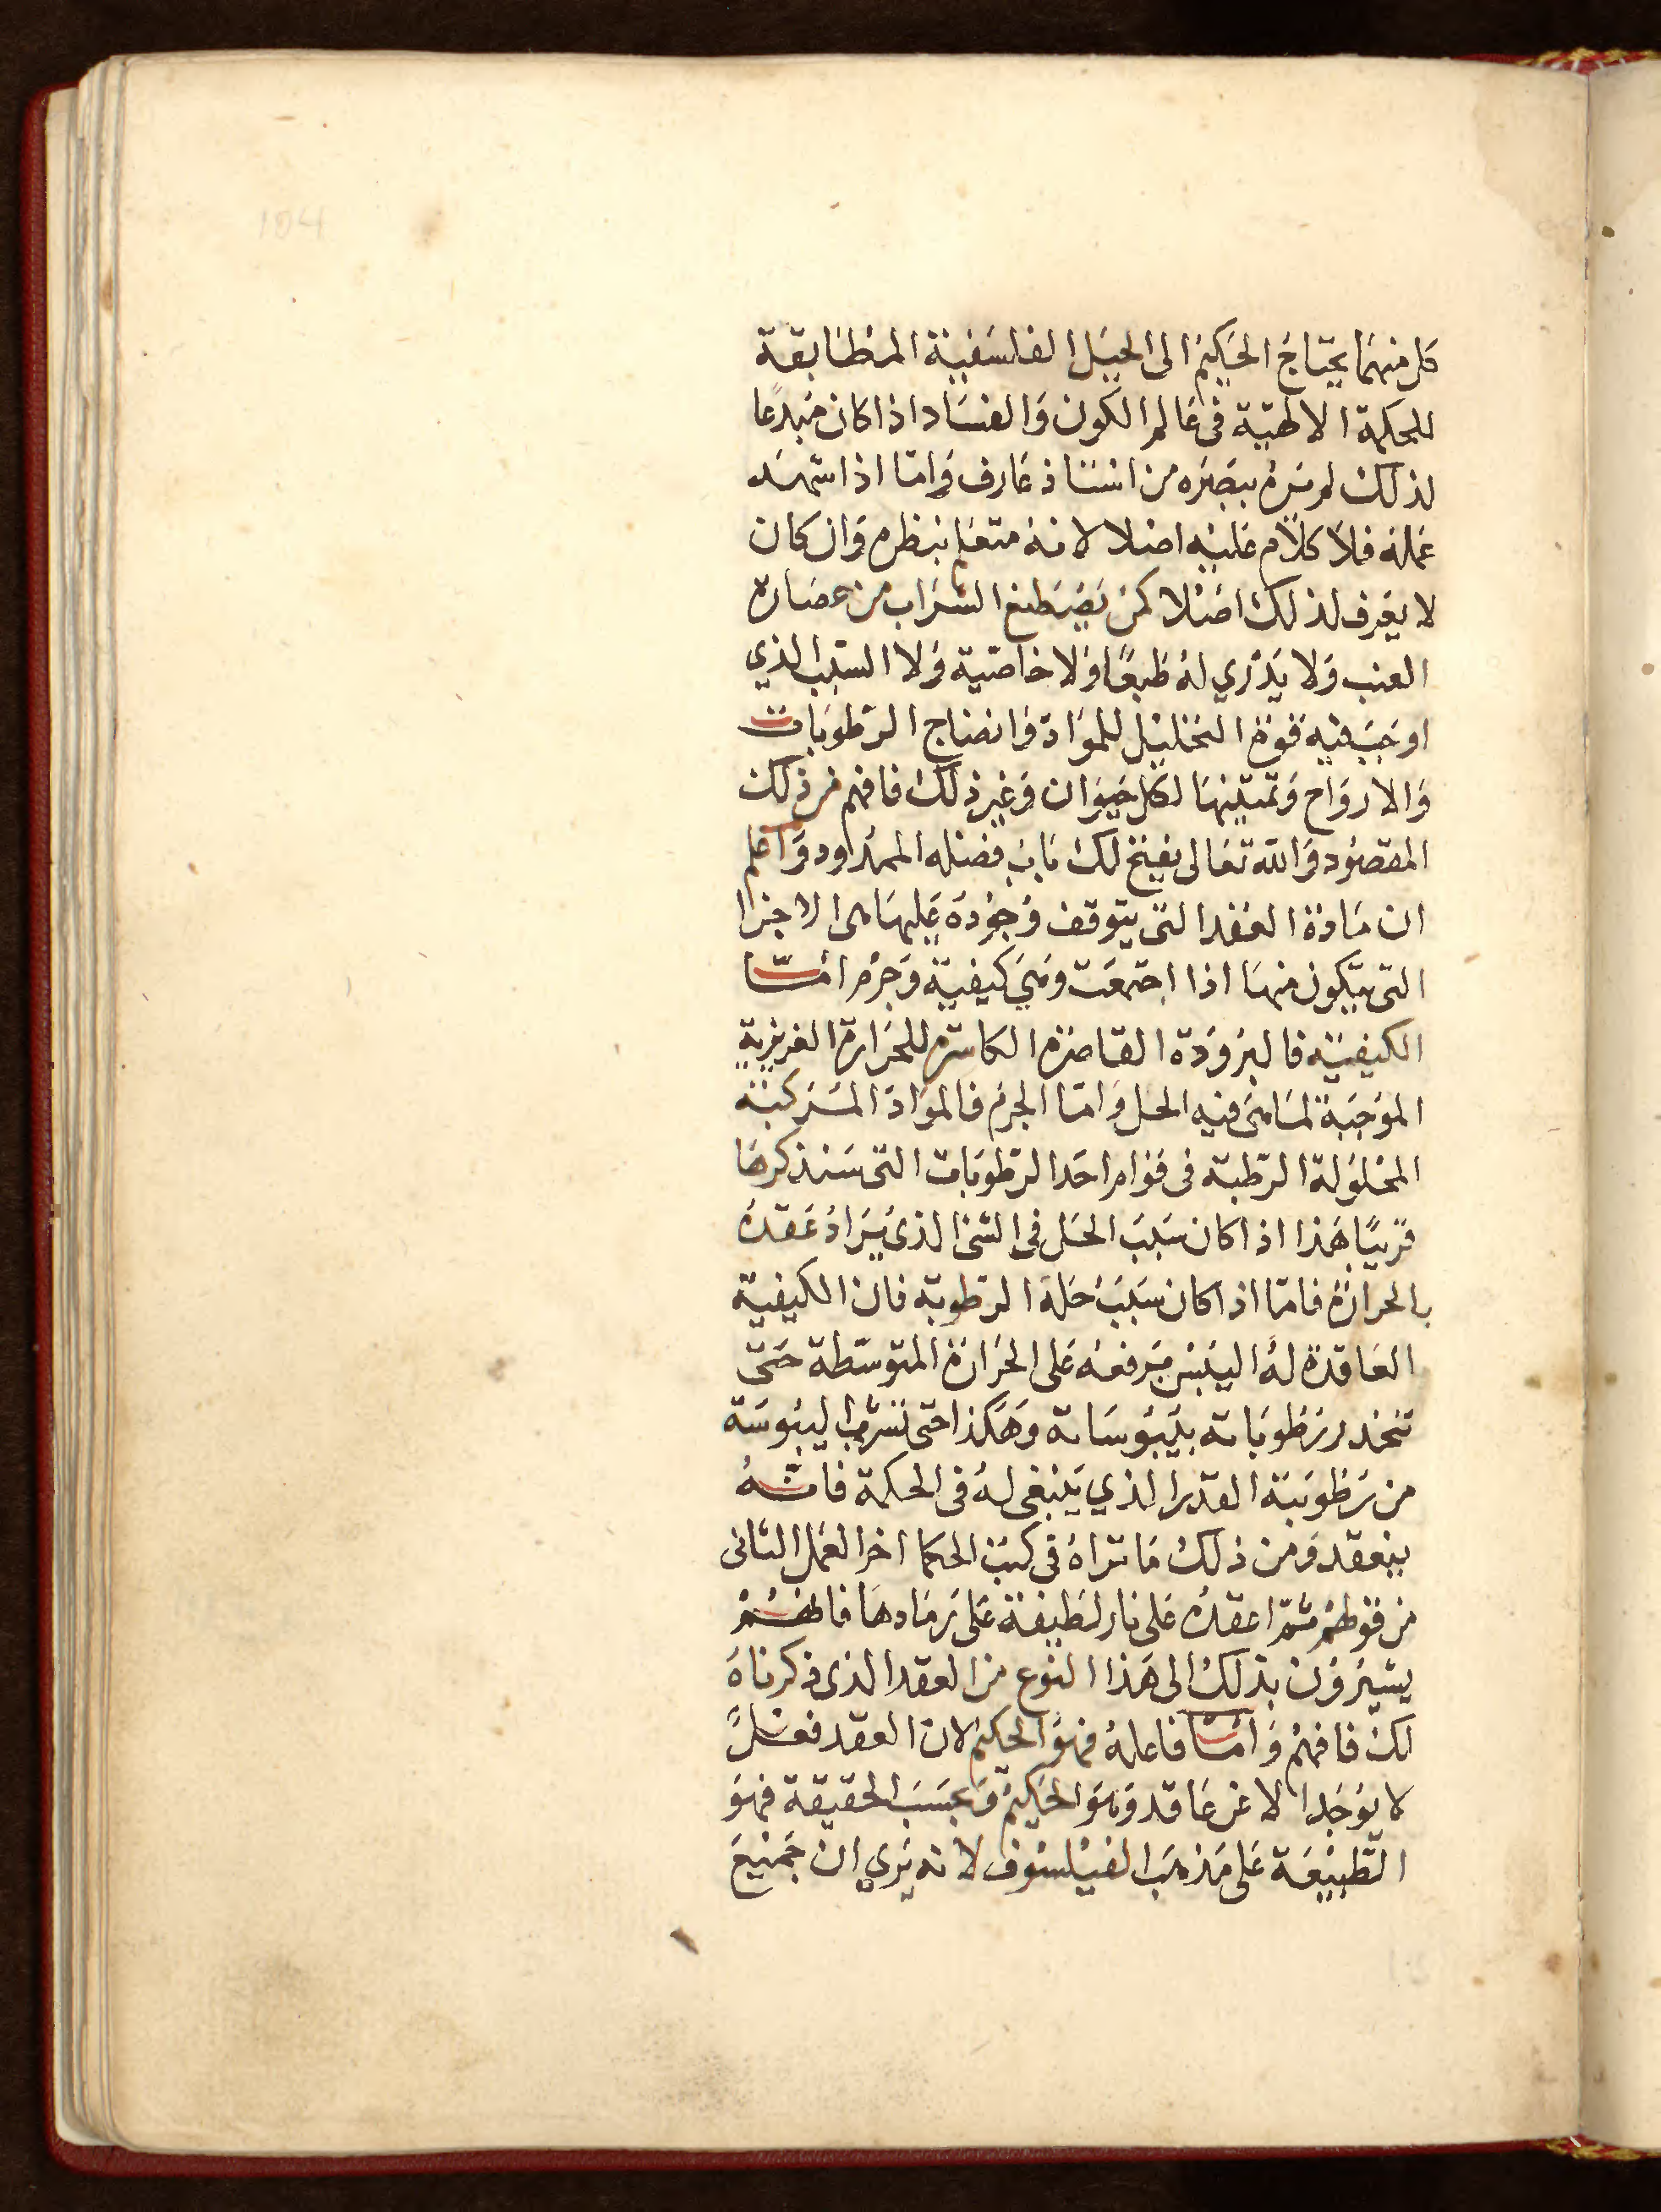 كل منهما يحتاج الحكيم الى الحيل الفلسفية المطابقة
للحكمة الالهية فى عالم الكون والفساد اذا كان مبدعا
لذلك لم يره ببصره من استاذ عارف واما اذا شهد
عمله فلا كلام عليه اصلا لانه متعلم بنظره وان كان
لا يعرف لذلك اصلا كمن يصطنع الشراب من عصارة
العنب ولا يدري له طبعا ولا خاصية ولا السبب الذي
اوجب فيه قوة التحليل للمواد وانضاج الرطوبات
والارواح وتمتينها لكل حيوان وغير ذلك فافهم من ذلك
المقصود والله تعالى يفتح لك باب فضله الممدود واعلم
ان مادة العقد التى يتوقف وجوده عليها هى الاجزا
التى يتكون منها اذا اجتمعت وهى كيفية وجرم امّا
الكيفية فالبرودة القاصرة الكاسرة للحرارة الغريزية
الموجبة لما هى فيه الحل واما الجرم فالمواد المركبة
المحلولة الرطبة فى قوام احد الرطوبات التى سنذكرها
قريبا هذا اذا كان سبب الحل فى الشى الذى يراد عقده
بالحرارة فاما اذا كان سبب حله الرطوبة فان الكيفية
العاقدة له اليبس برفعه على الحرارة المتوسطة حتى
تتحد رطوباته بيبوساته وهكذا حتى تشرب اليبوسة
من رطوبته القدر الذي ينبغى له فى الحكمة فانّه
ينعقد ومن ذلك ما تراه فى كتب الحكما اخر العمل الثانى
من قولهم ثمّ اعقده على نار لطيفة على رمادها فانهم
يشيرون بذلك الى هذا النوع من العقد الذى ذكرناه
لك فافهم وامّا فاعله فهو الحكيم لان العقد فعل
لا يوجد الا عن عاقد وهو الحكيم وبحسب الحقيقة فهو
الطبيعة على مذهب الفيلسوف لانه يري ان جميع